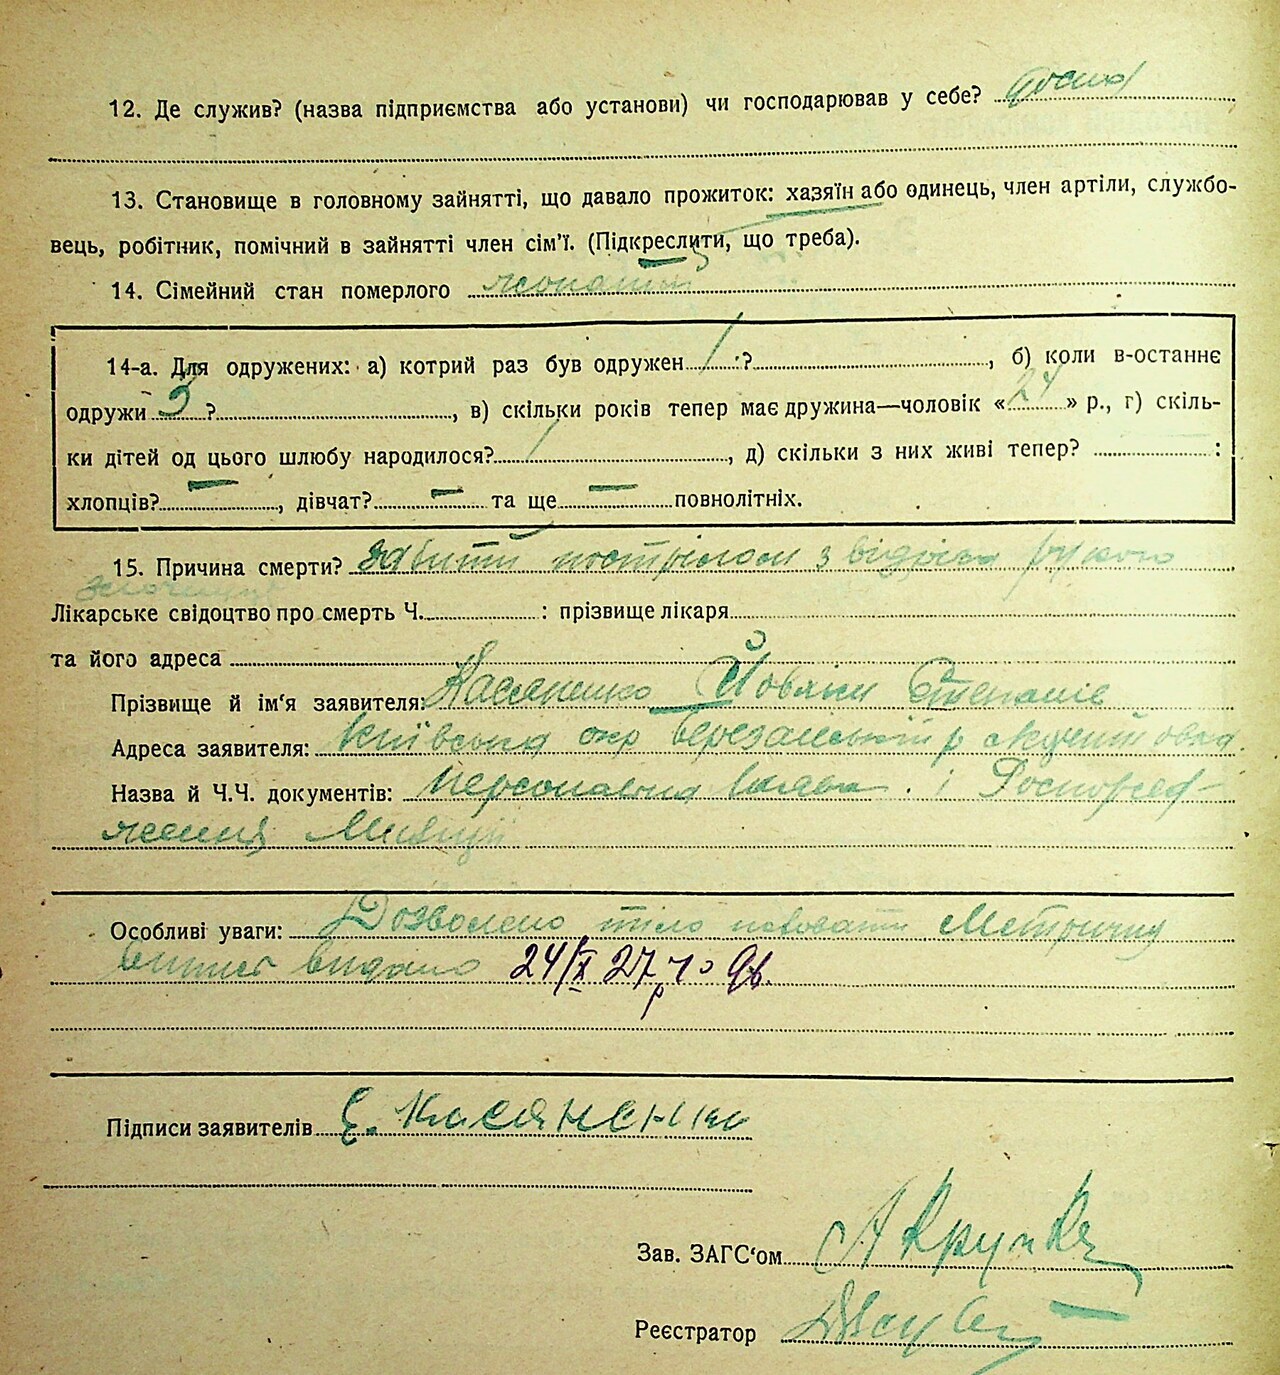 12. Де служив? (назва підприємства або установи) чи господарював у себе?
13. Становище в головному зайнятті, що давало прожиток: хазяїн або одинець, член артіли, службо-
вець, робітник, помічний в зайнятті член сім'ї. (Підкреслити, що треба).
14. Сімейний стан померлого жонатий
14-а. Для одружених: а) котрий раз був одружен 1 ?, б) коли в-останнє
одружи ?, в) скільки років тепер має дружина—чоловік « 24 » р., г) скіль-
ки дітей од цього шлюбу народилося?, д) скільки з них живі тепер? :
хлопців? —, дівчат? — та ще — повнолітніх.
15. Причина смерти? Забитий пострілом з
Лікарське свідоцтво про смерть Ч. : прізвище лікаря
та його адреса
Прізвище й ім'я заявителя: Касяненко
Адреса заявителя: Київська окр Березанський р
Назва й Ч.Ч. документів: персональна і Роспоряд-
ження Міліції
Особливі уваги: Дозволено тіло поховати Метричну
випис видано 24/IX 27р
Підписи заявителів Є. Касяненко
Зав. ЗАГС'ом
Реєстратор